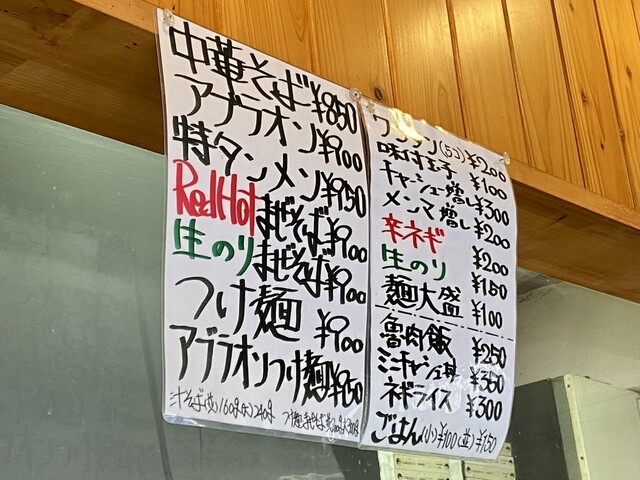 中華そば ¥850
アブラオン ¥900
特タンメン ¥950
Red Hot まぜそば ¥900
生のり まぜそば ¥900
つけ麺 ¥900
アブラオンつけ麺 ¥950
ワンタン(5コ) ¥200
味付玉子 ¥100
チャーシュー増し ¥300
メンマ増し ¥200
辛ネギ ¥200
生のり ¥150
麺大盛 ¥100
魯肉飯 ¥250
ミニチャーシュー丼 ¥350
ネギライス ¥300
ごはん(小)¥100(並)¥150